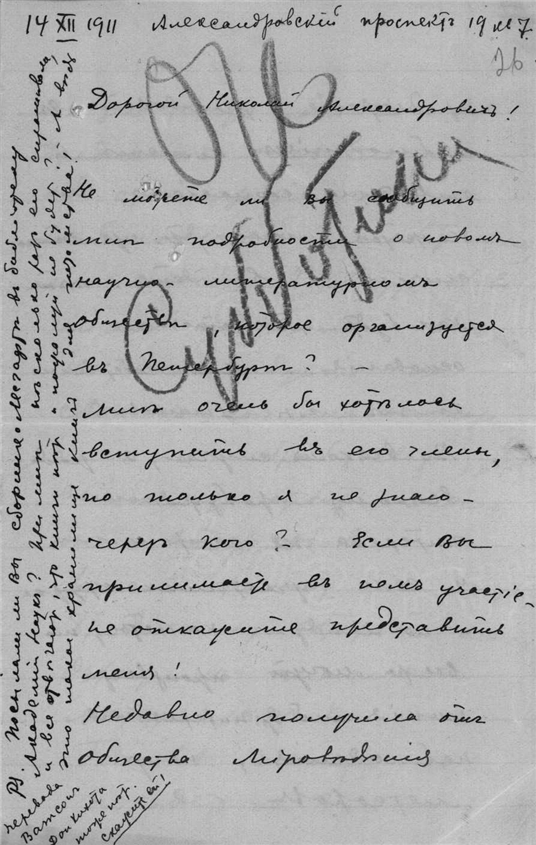 14 XII 1911 Александровскій проспектъ 19 м 7
26
Дорогой Николай Александровичъ!
Не можете ли вы сообщить
мнѣ подробности о новомъ
научно-литературномъ
обществѣ, которое организуется
въ Петербургѣ? –
мнѣ очень бы хотѣлось
вступить въ его члены,
но только я не знаю –
черезъ кого? Если вы
принимаете въ немъ участіе –
не откажите представить
меня!
Недавно получила отъ
Общества Міровѣдѣнія
PS Посылали ли Вы сборникъ въ библіотеку
Академіи Наукъ? При мнѣ нѣсколько разъ его спрашивали
и всѣ отвѣчаютъ, что книги нѣтъ и пожалуй не будетъ! А вѣдь
это такая хранилище книгъ для потомства!
перевода
Ватсонъ
Дон Кихота
тоже нѣтъ.
скажите ей!